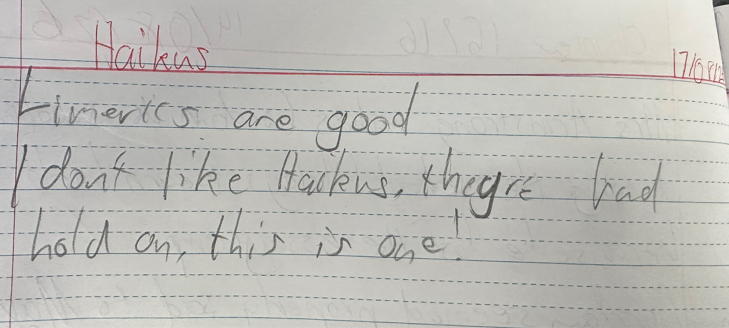 Haikus
17/08/12
Limerics are good
I don't like Haikus, they're bad
hold on, this is one!